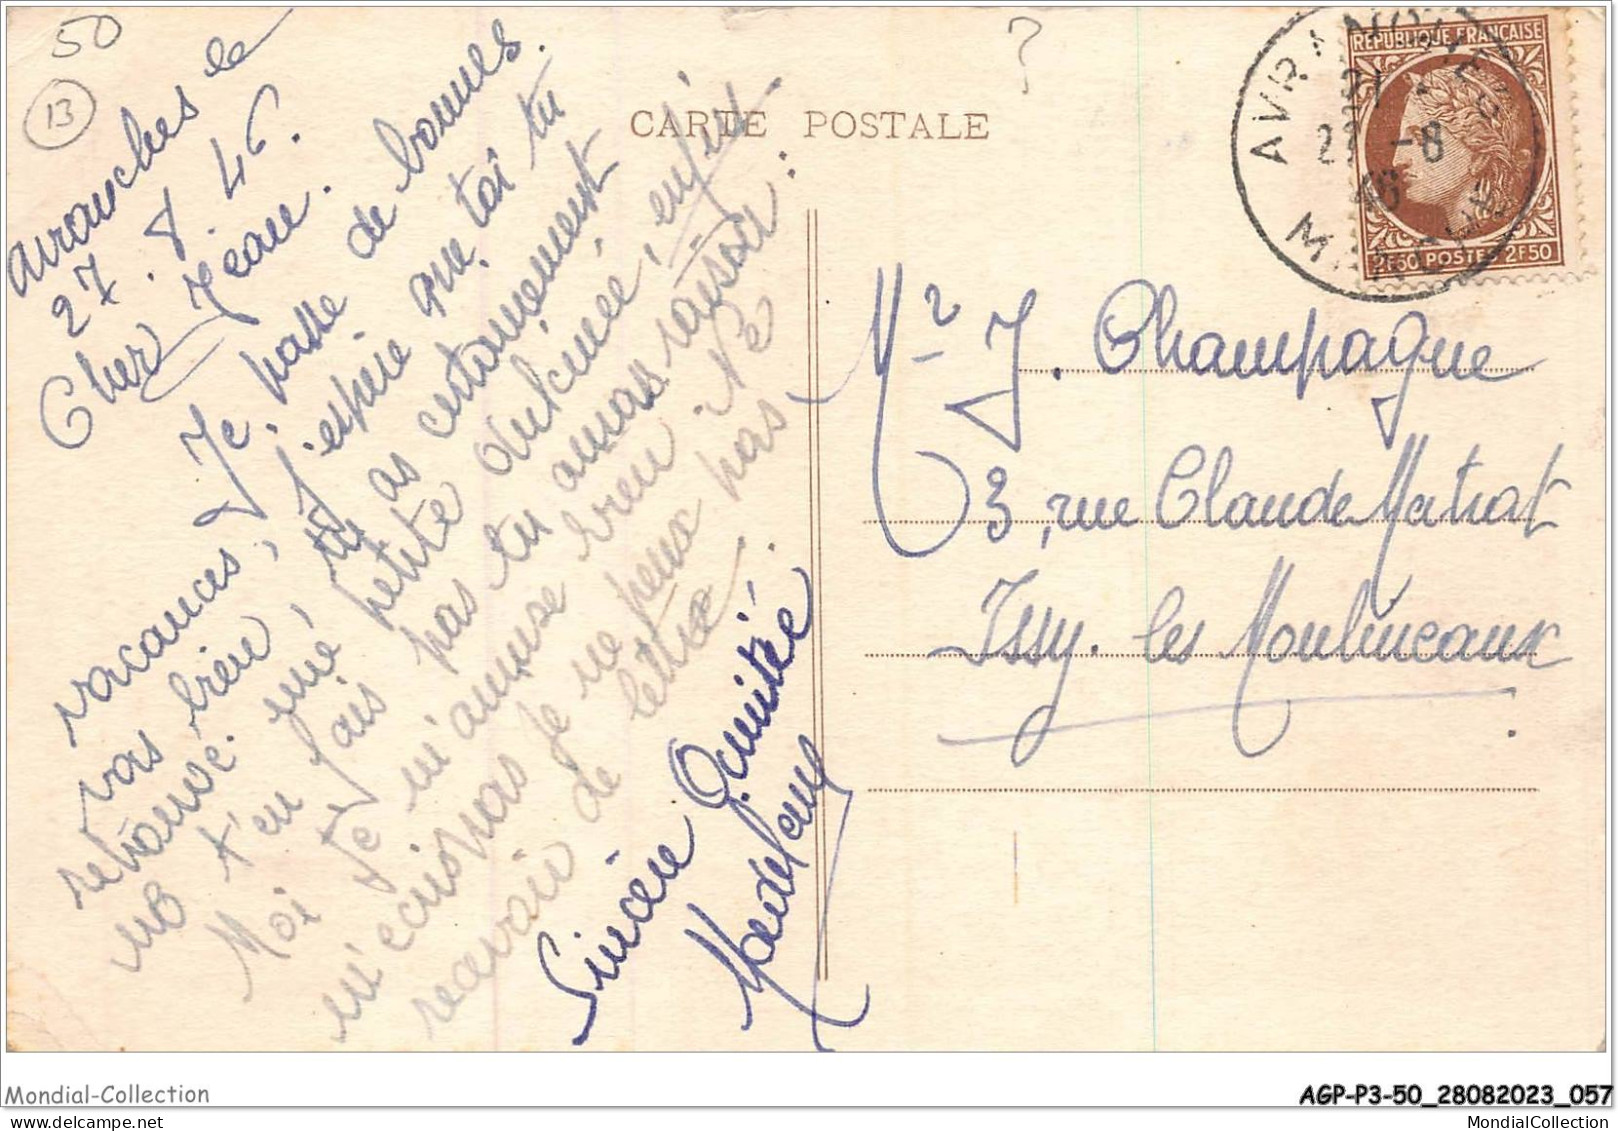 50
13
?
CARTE POSTALE
REPUBLIQUE FRANÇAISE
2F50 POSTES 2F50
AVRANCHES
27 -8
46
MANCHE
Avranches le
27.8.46.
Cher Jean.
Je passe de bonnes
vacances, j'espère que toi tu
vas bien, tu as certainement
retrouvé une petite dulcinée, enfin
ne t'en fais pas tu auras raison.
Moi Je m'amuse bien. Ne
m'écris pas je ne peux pas
recevoir de lettre.
Sincère Amitiée
Madeleine
Mr J. Champagne
3, rue Claude Matrat
Issy. les Moulineaux
Mondial-Collection
AGP-P3-50_28082023_057
MondialCollection